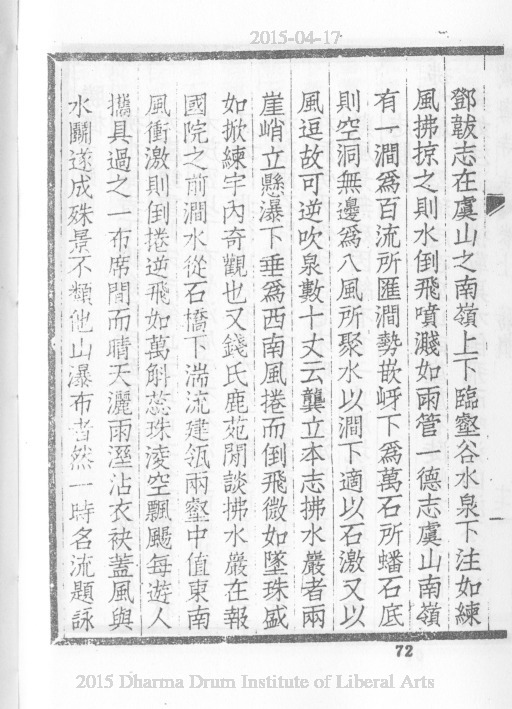 2015-04-17
鄧韍志在虞山之南嶺上下臨壑谷水泉下注如練
風拂掠之則水倒飛噴濺如雨管一德志虞山南嶺
有一澗爲百流所匯澗勢嵌岈下爲萬石所蟠石底
則空洞無邊爲八風所聚水以澗下適以石激又以
風逗故可逆吹泉數十丈云龔立本志拂水巖者兩
崖峭立懸瀑下垂爲西南風捲而倒飛微如墜珠盛
如掀練宇內奇觀也又錢氏鹿苑閒談拂水巖在報
國院之前澗水從石橋下湍流建瓴兩壑中值東南
風衝激則倒捲逆飛如萬斛蕊珠淩空飄颺每遊人
攜具過之一布席間而晴天灑雨溼沾衣袂蓋風與
水鬭遂成殊景不類他山瀑布者然一時名流題詠
72
2015 Dharma Drum Institute of Liberal Arts